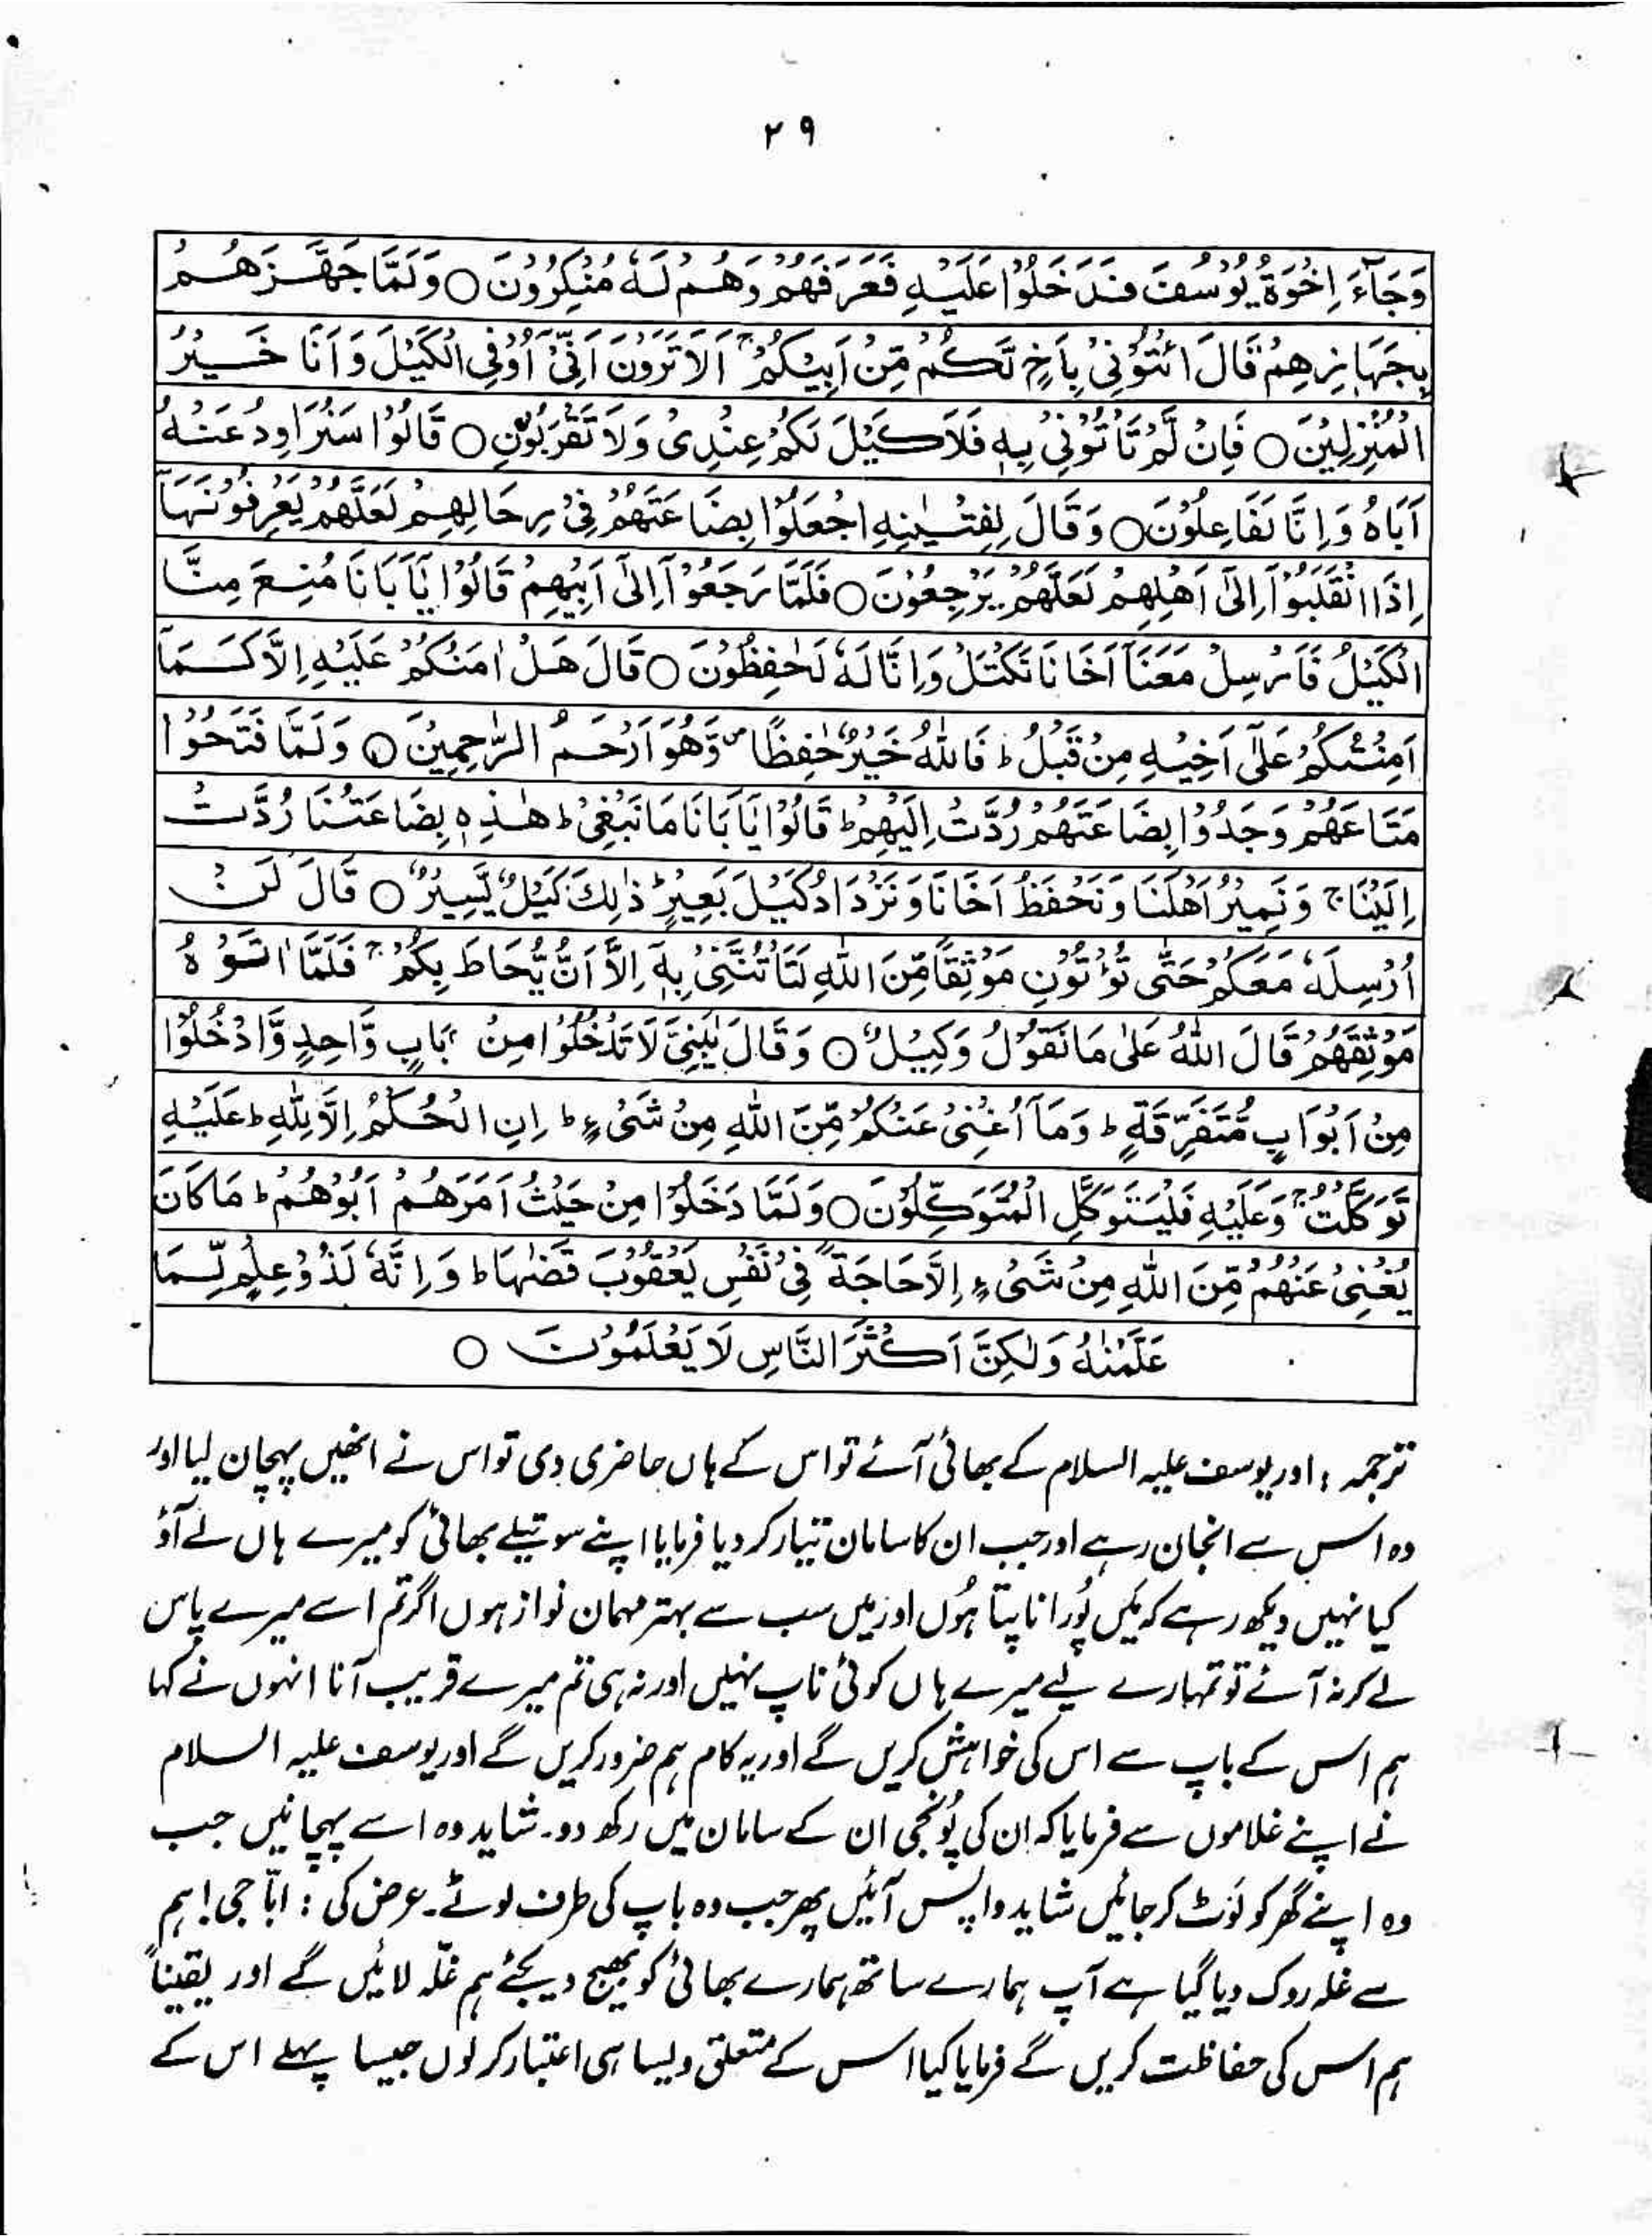 ۲۹
وَجَآءَ اِخْوَةُ یُوْسُفَ فَدَخَلُوْا عَلَیْهِ فَعَرَفَهُمْ وَهُمْ لَهٗ مُنْكِرُوْنَ ○ وَلَمَّا جَهَّزَهُمْ
بِجَهَازِهِمْ قَالَ ائْتُوْنِیْ بِاَخٍ لَّكُمْ مِّنْ اَبِیْكُمْ ۚ اَلَا تَرَوْنَ اَنِّیْۤ اُوْفِی الْكَیْلَ وَاَنَا خَیْرُ
الْمُنْزِلِیْنَ ○ فَاِنْ لَّمْ تَاْتُوْنِیْ بِهٖ فَلَا كَیْلَ لَكُمْ عِنْدِیْ وَلَا تَقْرَبُوْنِ ○ قَالُوْا سَنُرَاوِدُ عَنْهُ
اَبَاهُ وَاِنَّا لَفَاعِلُوْنَ ○ وَقَالَ لِفِتْیٰنِهِ اجْعَلُوْا بِضَاعَتَهُمْ فِیْ رِحَالِهِمْ لَعَلَّهُمْ یَعْرِفُوْنَهَاۤ
اِذَا انْقَلَبُوْۤا اِلٰۤی اَهْلِهِمْ لَعَلَّهُمْ یَرْجِعُوْنَ ○ فَلَمَّا رَجَعُوْۤا اِلٰۤی اَبِیْهِمْ قَالُوْا یٰۤاَبَانَا مُنِعَ مِنَّا
الْكَیْلُ فَاَرْسِلْ مَعَنَاۤ اَخَانَا نَكْتَلْ وَاِنَّا لَهٗ لَحٰفِظُوْنَ ○ قَالَ هَلْ اٰمَنُكُمْ عَلَیْهِ اِلَّا كَمَاۤ
اَمِنْتُكُمْ عَلٰۤی اَخِیْهِ مِنْ قَبْلُ ؕ فَاللّٰهُ خَیْرٌ حٰفِظًا ۪ وَّهُوَ اَرْحَمُ الرّٰحِمِیْنَ ○ وَلَمَّا فَتَحُوْا
مَتَاعَهُمْ وَجَدُوْا بِضَاعَتَهُمْ رُدَّتْ اِلَیْهِمْ ؕ قَالُوْا یٰۤاَبَانَا مَا نَبْغِیْ ؕ هٰذِهٖ بِضَاعَتُنَا رُدَّتْ
اِلَیْنَا ۚ وَنَمِیْرُ اَهْلَنَا وَنَحْفَظُ اَخَانَا وَنَزْدَادُ كَیْلَ بَعِیْرٍ ؕ ذٰلِكَ كَیْلٌ یَّسِیْرٌ ○ قَالَ لَنْ
اُرْسِلَهٗ مَعَكُمْ حَتّٰی تُؤْتُوْنِ مَوْثِقًا مِّنَ اللّٰهِ لَتَاْتُنَّنِیْ بِهٖۤ اِلَّاۤ اَنْ یُّحَاطَ بِكُمْ ۚ فَلَمَّاۤ اٰتَوْهُ
مَوْثِقَهُمْ قَالَ اللّٰهُ عَلٰی مَا نَقُوْلُ وَكِیْلٌ ○ وَقَالَ یٰبَنِیَّ لَا تَدْخُلُوْا مِنْۢ بَابٍ وَّاحِدٍ وَّادْخُلُوْا
مِنْ اَبْوَابٍ مُّتَفَرِّقَةٍ ؕ وَمَاۤ اُغْنِیْ عَنْكُمْ مِّنَ اللّٰهِ مِنْ شَیْءٍ ؕ اِنِ الْحُكْمُ اِلَّا لِلّٰهِ ؕ عَلَیْهِ
تَوَكَّلْتُ ۚ وَعَلَیْهِ فَلْیَتَوَكَّلِ الْمُتَوَكِّلُوْنَ ○ وَلَمَّا دَخَلُوْا مِنْ حَیْثُ اَمَرَهُمْ اَبُوْهُمْ ؕ مَا كَانَ
یُغْنِیْ عَنْهُمْ مِّنَ اللّٰهِ مِنْ شَیْءٍ اِلَّا حَاجَةً فِیْ نَفْسِ یَعْقُوْبَ قَضٰىهَا ؕ وَاِنَّهٗ لَذُوْ عِلْمٍ لِّمَا
عَلَّمْنٰهُ وَلٰكِنَّ اَكْثَرَ النَّاسِ لَا یَعْلَمُوْنَ ○
ترجمہ : اور یوسف علیہ السلام کے بھائی آئے تو اس کے ہاں حاضری دی تو اس نے انھیں پہچان لیا اور
وہ اس سے انجان رہے اور جب ان کا سامان تیار کر دیا فرمایا اپنے سوتیلے بھائی کو میرے ہاں لے آؤ
کیا نہیں دیکھ رہے کہ میں پُورا ناپتا ہُوں اور میں سب سے بہتر مہمان نواز ہوں اگر تم اسے میرے پاس
لے کر نہ آئے تو تمہارے لیے میرے ہاں کوئی ناپ نہیں اور نہ ہی تم میرے قریب آنا انہوں نے کہا
ہم اس کے باپ سے اس کی خواہش کریں گے اور یہ کام ہم ضرور کریں گے اور یوسف علیہ السلام
نے اپنے غلاموں سے فرمایا کہ ان کی پُونجی ان کے سامان میں رکھ دو۔ شاید وہ اسے پہچانیں جب
وہ اپنے گھر کو لَوٹ کر جائیں شاید واپس آئیں پھر جب وہ باپ کی طرف لوٹے۔ عرض کی : ابّا جی! ہم
سے غلہ روک دیا گیا ہے آپ ہمارے ساتھ ہمارے بھائی کو بھیج دیجئے ہم غلّہ لائیں گے اور یقیناً
ہم اس کی حفاظت کریں گے فرمایا کیا اس کے متعلق ویسا ہی اعتبار کر لوں جیسا پہلے اس کے